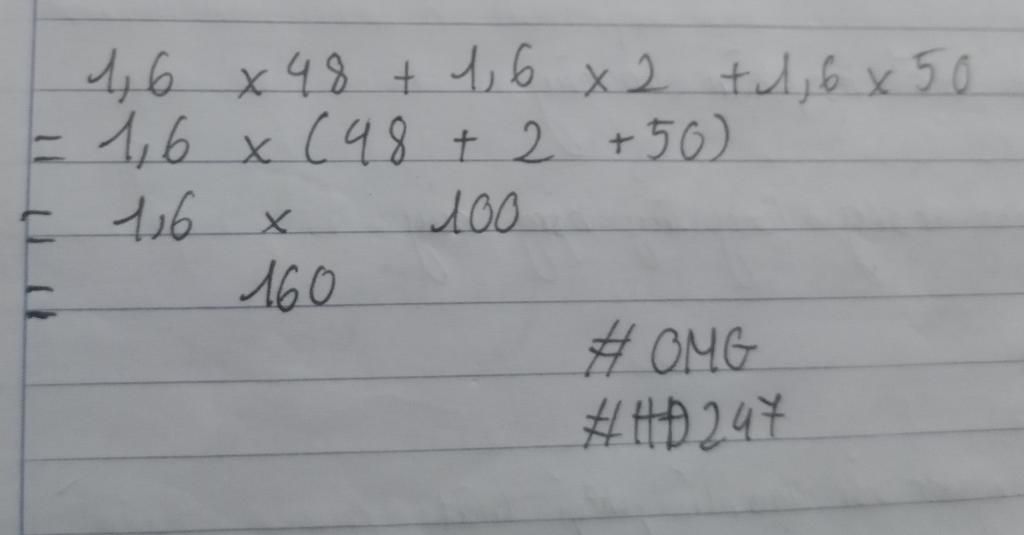 1,6 x 48 + 1,6 x 2 + 1,6 x 50
= 1,6 x (48 + 2 + 50)
= 1,6 x 100
= 160
# OMG
#HĐ247